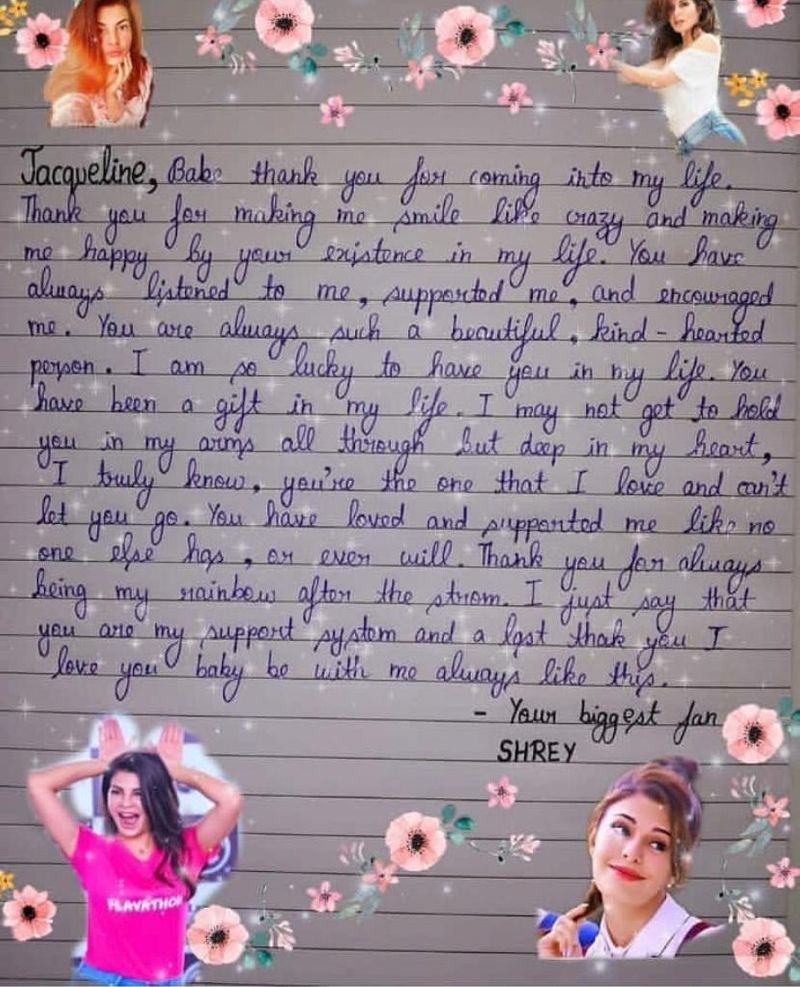 Jacqueline, Babe thank you for coming into my life.
Thank you for making me smile like crazy and making
me happy by your existence in my life. You have
always listened to me, supported me, and encouraged
me. You are always such a beautiful, kind-hearted
person. I am so lucky to have you in my life. You
have been a gift in my life. I may not get to hold
you in my arms all through but deep in my heart,
I truly know, you're the one that I love and can't
let you go. You have loved and supported me like no
one else has, or ever will. Thank you for always
being my rainbow after the strom. I just say that
you are my support system and a last thak you I
love you baby be with me always like this.
- Your biggest fan
SHREY
PLAVATHON